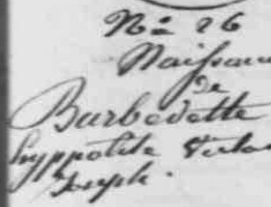 No 26
Naissance
de
Barbedette
hyppolite Victor
Joseph.